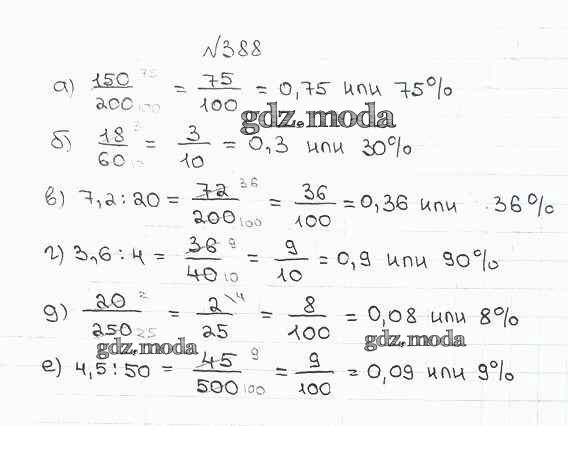 №388
а) 150/200 75 100 = 75/100 = 0,75 или 75%
gdz.moda
б) 18/60 3 10 = 3/10 = 0,3 или 30%
в) 7,2 : 20 = 72/200 36 100 = 36/100 = 0,36 или 36%
г) 3,6 : 4 = 36/40 9 10 = 9/10 = 0,9 или 90%
д) 20/250 2 25 = 2\4/25 = 8/100 = 0,08 или 8%
gdz.moda gdz.moda
е) 4,5 : 50 = 45/500 9 100 = 9/100 = 0,09 или 9%